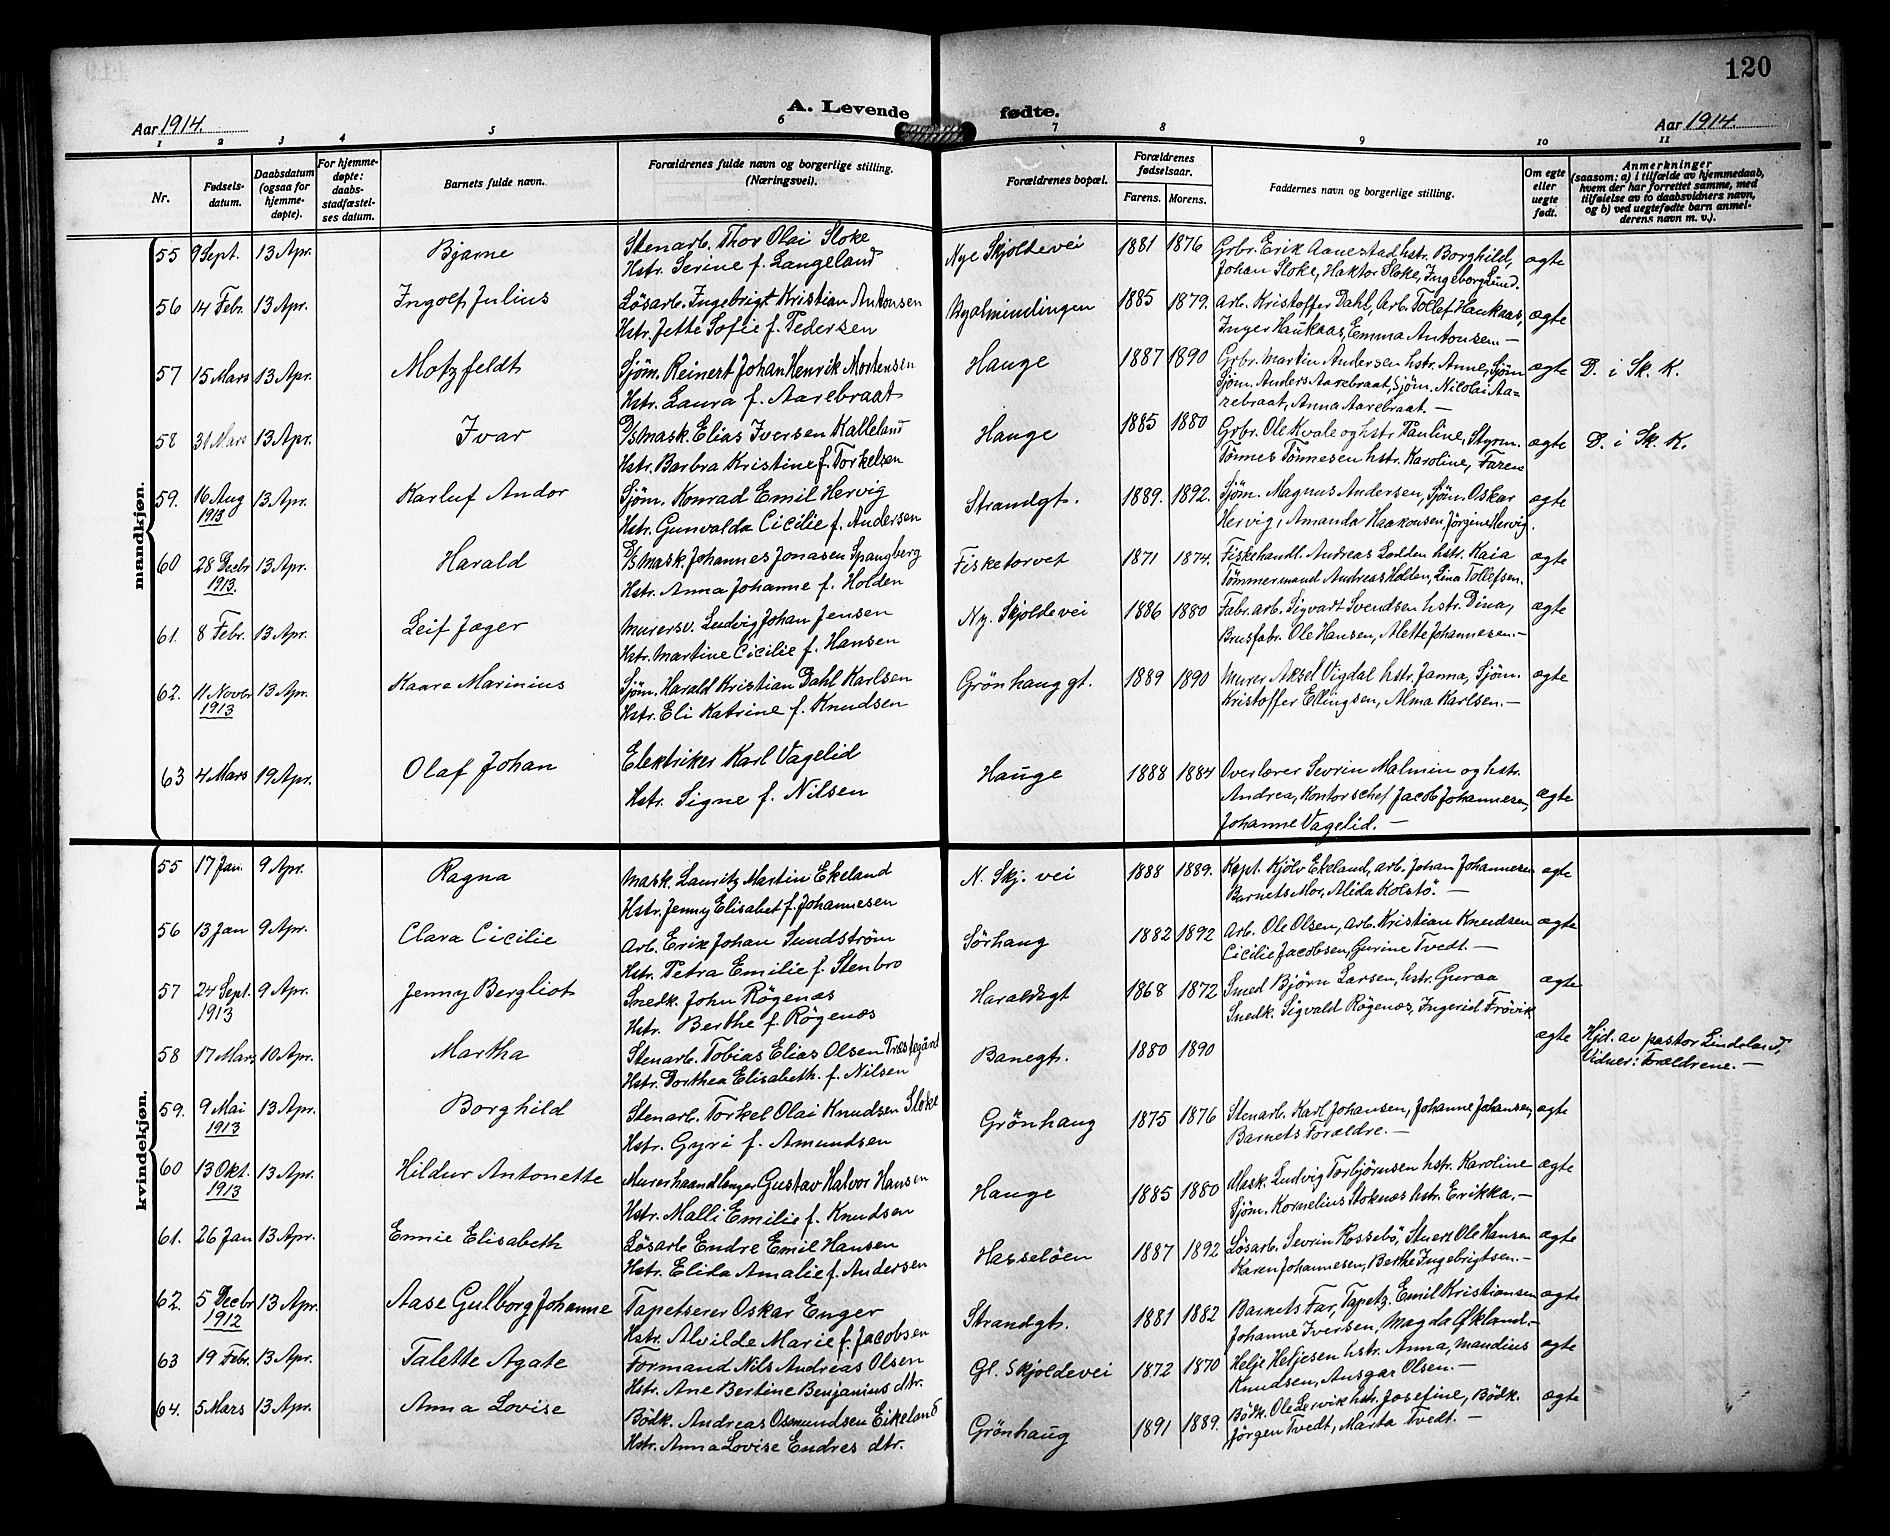 120
A. Levende fødte.
Aar 1914.
Aar 1914.
1 2 3 4 5 6 7 8 9 10 11
Nr.
Fødsels-
datum.
Daabsdatum
(ogsaa for
hjemme-
døpte).
For hjemme-
døpte:
daabs-
stadfæstel-
ses datum.
Barnets fulde navn.
Forældrenes fulde navn og borgerlige stilling.
(Næringsvei).
Forældrenes bopæl.
Forældrenes
fødselsaar.
Farens. Morens.
Faddernes navn og borgerlige stilling.
Om egte
eller
uegte
født.
Anmerkninger
(saasom: a) i tilfælde av hjemmedaab,
hvem der har forrettet samme, med
tilføielse av to daabsvidners navn,
og b) ved uegtefødte barn anmel-
derens navn m. v.).
mandkjøn.
55 9 Sept. 13 Apr. Bjarne Stenarb. Thor Olai Stoke Nye Skjoldevei 1881 1876 Grbr. Erik Aanestad hstr. Borghild, ægte
Hstr. Serine f. Langeland Johan Stoke, Haktor Stoke, Ingeborg Lund.
56 14 Febr. 13 Apr. Ingolf Julius Løsarb. Ingebrigt Kristian Antonsen Nyalmindingen 1885 1879. Arb. Kristoffer Dahl, Arb. Tollef Haukaas, ægte
Hstr. Jette Sofie f. Pedersen Inger Haukaas, Emma Antonsen.—
57 15 Mars 13 Apr. Motzfeldt Sjøm. Reinert Johan Henrik Mortensen Hauge 1887 1890 Grbr. Martin Andersen hstr. Anne, Sjøm ægte D. i Sk. K.
Hstr. Laura f. Aarebraat Sjøm. Anders Aarebraat, Sjøm. Nicolai Aa=
rebraat, Anna Aarebraat.—
58 31 Mars 13 Apr. Ivar D/S mask. Elias Iversen Kalleland Hauge 1885 1880 Grbr. Ole Kvale og hstr Pauline, Styrm. ægte D. i Sk. K.
Hstr. Barbra Kristine f. Torkelsen Tönnes Tönnesen hstr. Karoline, Faren
59. 16 Aug 1913 13 Apr. Karluf Andor Sjøm. Konrad Emil Hervig Strandgt. 1889. 1892. Sjøm. Magnus Andersen, Sjøm. Oskar ægte
Hstr. Gunvalda Cicilie f. Andersen Hervig, Amanda Haakonsen, Jørgine Hervig.
60 28 Decbr 1913. 13 Apr. Harald D/S mask. Johannes Jonasen Spangberg Fisketorvet 1871 1874. Fiskehandl. Andreas Lodden hstr. Kaia ægte
Hstr. Anna Johanne f. Holden Tømmermand Andreas Holden, Lina Tollefsen.
61. 8 Febr. 13 Apr. Leif Jæger Murersv. Ludvig Johan Jensen Ny. Skjoldevei 1886 1880 Fabr. arb. Sigvart Svendsen hstr. Dina, ægte
Hstr. Martine Cicilie f. Hansen Brusfabr. Ole Hansen, Alette Johannesen.—
62. 11 Novbr 1913 13 Apr. Kaare Marinius Sjøm. Harald Kristian Dahl Karlsen Grönhauggt. 1889 1890 Murer Aksel Vigdal hstr. Janna, Sjøm. ægte
Hstr. Eli Katrine f. Knudsen Kristoffer Ellingsen, Alma Karlsen.—
63 4 Mars 19 Apr. Olaf Johan Elektriker Karl Vagelid Hauge 1888 1884 Overlærer Sevrin Malmin og hstr.
Hstr. Signe f. Nilsen Andrea, Kontorschef Jacob Johannesen, ægte
Johanne Vagelid.—
kvindekjøn.
55 17 Jan. 9 Apr. Ragna Mask. Lauritz Martin Ekeland N. Skj. vei 1888 1889. Kapt. Kjölv Ekeland, arb. Johan Johannesen ægte
Hstr. Jenny Elisabet f. Johannesen Barnets Mor, Alida Kolstö.—
56 13 Jan 9 Apr. Clara Cicilie Arb. Erik Johan Sundström Sörhaug 1882 1892 Arb. Ole Olsen, arb. Kristian Knudsen ægte
Hstr. Petra Emilie f. Stenbro Cicilie Jacobsen, Gurine Tvedt.—
57 24 Sept. 1913 9 Apr. Jenny Bergliot Snedk. John Røgenæs Haraldsgt 1868 1872 Smed Bjørn Larsen, hstr. Guraa ægte
Hstr. Berthe f. Røgenæs Snedk. Sigvald Røgenæs, Ingerid Frövik
58 17 Mars 10 Apr. Martha Stenarb. Tobias Elias Olsen Træstegård Banegt. 1880 1890 ægte Hjd. av pastor Lindeland,
Hstr. Dorthea Elisabeth. f. Nilsen Vidner: Forældrene.—
59. 9 Mai 1913 13 Apr. Borghild Stenarb. Torkel Olai Knudsen Stoke Grönhaug 1875 1876 Stenarb. Karl Johansen, Johanne Johansen, ægte
Hstr. Gyri f. Amundsen Barnets Forældre.—
60 13 Okt. 1913 13 Apr. Hildur Antonette Murerhaandlanger Gustav Halvor Hansen Hauge 1885 1880 Mask. Ludvig Torbjörnsen hstr. Karoline ægte
Hstr. Malli Emilie f. Knudsen Sjøm. Kornelius Stoknæs hstr. Erikka.—
61. 26 Jan 13 Apr. Ennie Elisabeth Løsarb Endre Emil Hansen Hasseløen 1887 1892 Løsarb. Sevrin Rossebö, Stuert Ole Hansen ægte
Hstr. Elida Amalie f. Andersen Karen Johannesen, Berthe Ingebrigtsen.—
62. 5 Decbr 1912 13 Apr. Aase Gulborg Johanne Tapetserer Oskar Enger Strandgt. 1881 1882 Barnets Far, Tapetz. Emil Kristiansen ægte
Hstr. Alvilde Marie f. Jacobsen Johanne Iversen, Magda Økland.—
63 19 Febr. 13 Apr. Talette Agate Formand Nils Andreas Olsen Gl. Skjoldevei 1872 1870 Helje Heljesen hstr. Anna, Mandius ægte
Hstr. Ane Bertine Benjanius dtr. Knudsen, Ansgar Olsen.—
64. 5 Mars 13 Apr. Anna Lovise Bödk. Andreas Osmundsen Eikeland Grönhaug 1891 1889. Bödk. Ole Lervik hstr. Josefine, Bödk. ægte
Hstr. Anna Lovise Endres dtr. Jørgen Tvedt, Marta Tvedt.—